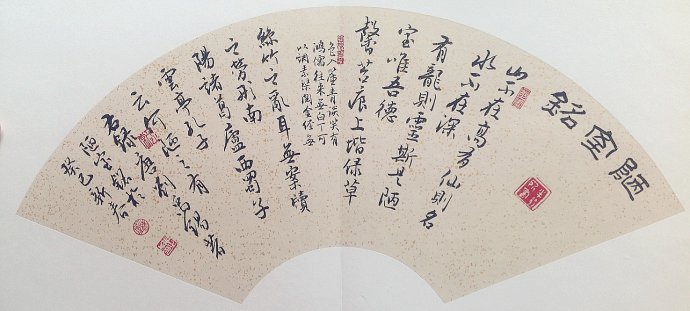 陋室銘
山不在高有仙則名
水不在深
有龍則靈斯是陋
室唯吾德
馨苔痕上堦绿草
色入簾青談笑有
鴻儒往來無白丁可
以調素琴閱金經無
絲竹之亂耳無案牘
之勞形南
陽諸葛廬西蜀子
雲亭孔子
云何陋之有
右録唐劉禹錫著
陋室銘於
癸巳新春